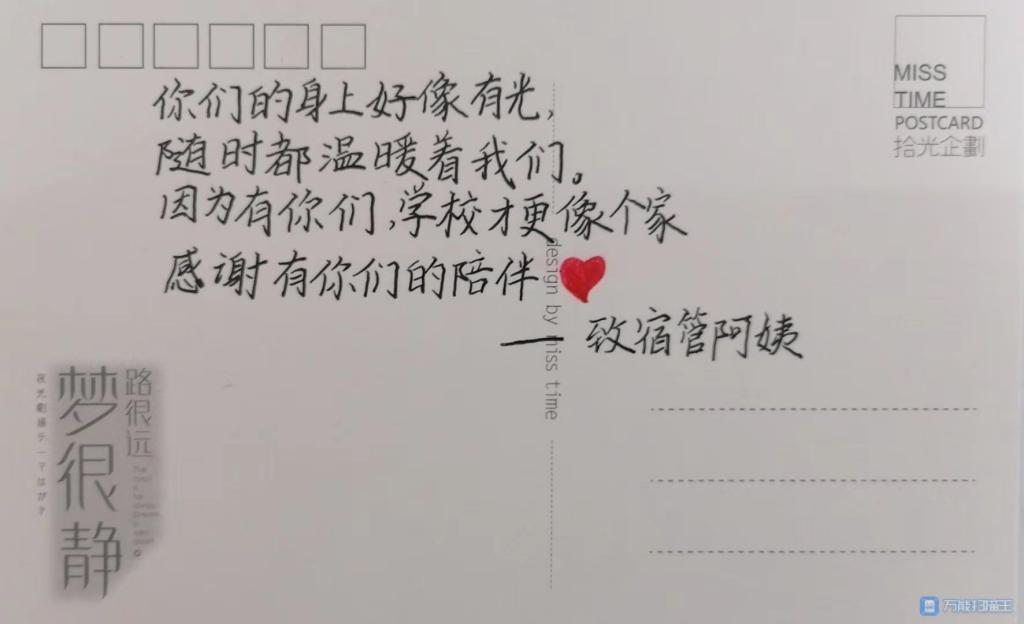 你们的身上好像有光,
随时都温暖着我们。
因为有你们,学校才更像个家
感谢有你们的陪伴
——致宿管阿姨
MISS
TIME
POSTCARD
拾光企劃
design by miss time
路很远
梦很静
万能扫描王